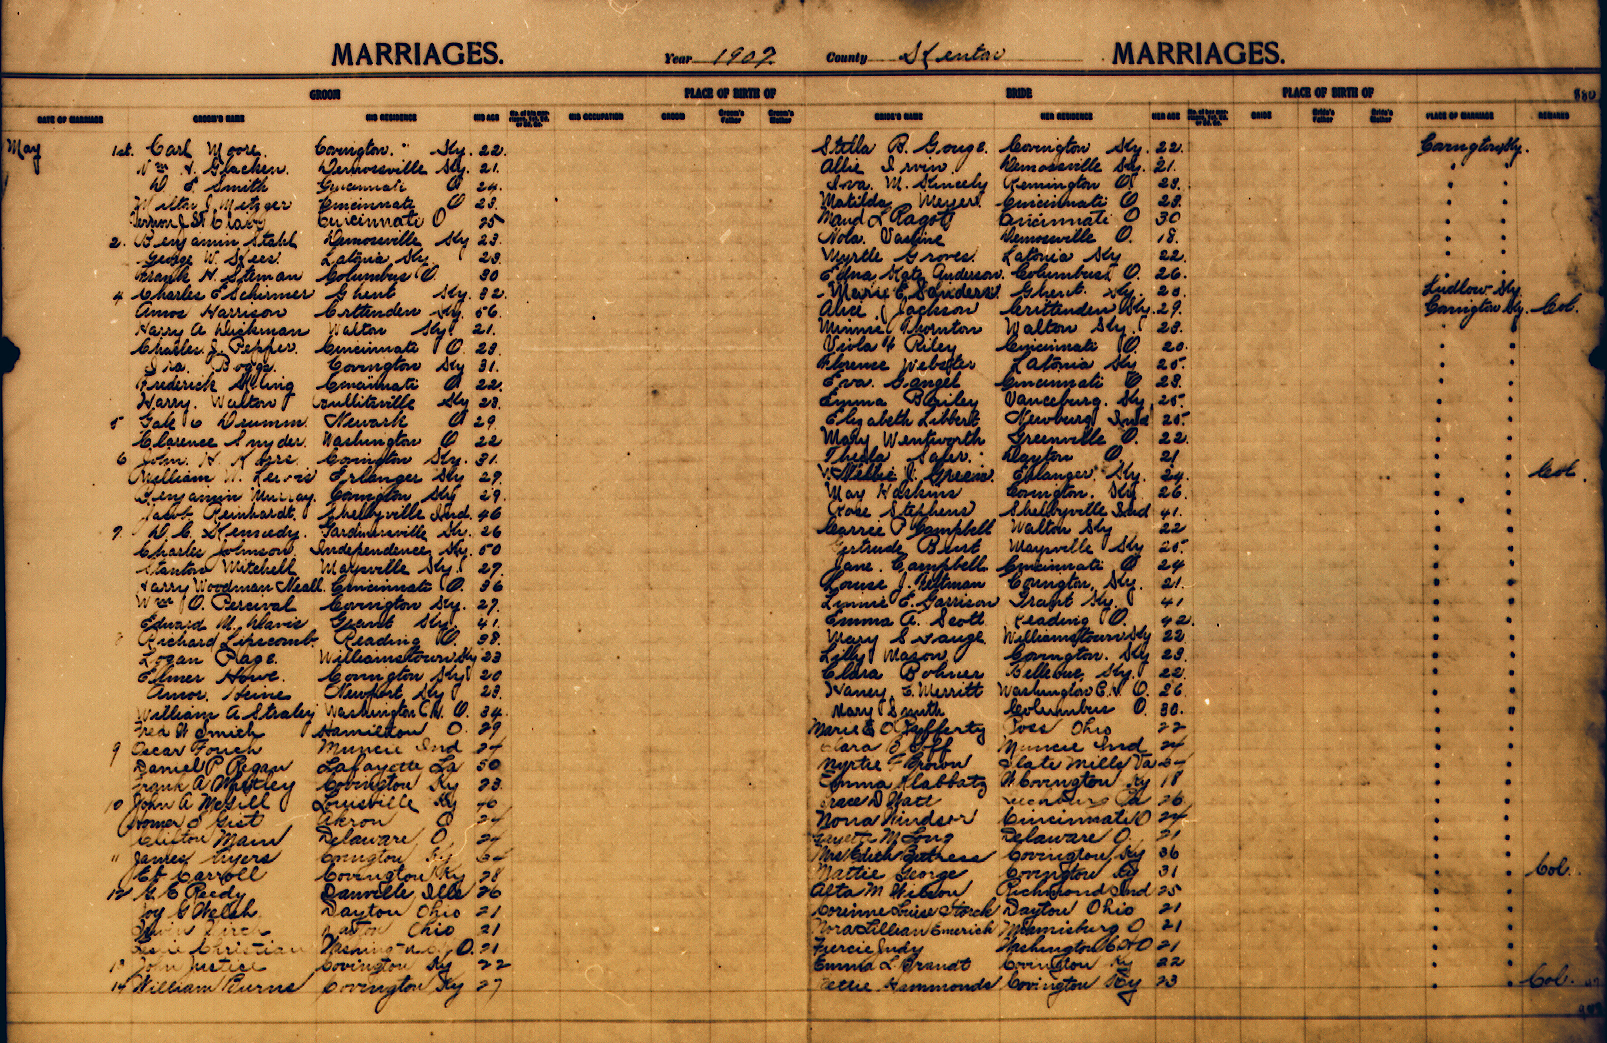 MARRIAGES. Year 1907. County Kenton MARRIAGES.
GROOM PLACE OF BIRTH OF BRIDE PLACE OF BIRTH OF 880
DATE OF MARRIAGE GROOM'S NAME HIS RESIDENCE HIS AGE HIS OCCUPATION GROOM Groom's Father Groom's Mother BRIDE'S NAME HER RESIDENCE HER AGE BRIDE Bride's Father Bride's Mother PLACE OF MARRIAGE REMARKS
May 1st. Carl Moore Covington. " Ky. 22. Stella B. Gouge. Covington Ky. 22. Covington Ky.
Wm Glacken. Demossville Ky. 21. Allie Irvin Demossville Ky. 21. " "
Smith Cincinnati O. 24. Iva. M. Remington O. 23. " "
Milton J. Metzger Cincinnati O 23. Matilda Meyers Cincinnati O. 23. " "
Vernon J. St Clair Cincinnati O 25 Maud L Ragotz Cincinnati O 30 " "
2. Benjamin Stahl Demossville Ky 23. Nola. Demossville O. 18. " "
George W. Latonia Ky 23. Myrtle Groves. Latonia Ky 22. " "
Frank H. Siteman Columbus O. 30 Edna Kate Anderson. Columbus O. 26. " "
4 Charles E Schirmer Ghent Ky. 32. Marie E. Sanders. Ghent Ky. 28. Ludlow Ky
Amos Harrison Crittenden Ky. 56. Alice Jackson Crittenden Ky. 29. Covington Ky. Col.
Harry A Dickman Walton Ky. 21. Minnie Thornton Walton Ky. 23. " "
Charles J. Pepper. Cincinnati O. 23. Viola Riley Cincinnati O. 20. " "
Ira. Boggs. Covington Ky 31. Florence Webster Latonia Ky 25. " "
Frederick Cincinnati O 22. Eva. Gangel Cincinnati O 23. " "
Harry. Walton 23. Emma Vanceburg. Ky. 25. " "
5 Gale C Drumm. Newark O 29. Elizabeth Libbert Newburg Ind 25. " "
Clarence Snyder. Washington O 22 Mary Wentworth Greenville O. 22. " "
6 John. H. Covington Ky. 31. Dayton O. 21 " "
William W. Lewis Erlanger Ky 27. J. Greene. Erlanger. Ky. 24. " " Col.
Benjamin Murray. Covington Ky 29. May Haskins Covington. Ky. 26. " "
Jacob Reinhardt. Shelbyville Ind. 46 Rose Stephens Shelbyville Ind 41. " "
7 D. C. Kennedy. Gardnersville Ky. 26 Carrie P. Campbell Walton Ky 22 " "
Charles Johnson. Independence Ky. 50 Gertrude Burt Maysville Ky 25. " "
Stanton Mitchell Maysville Ky. 27. Jane. Campbell Cincinnati O. 24 " "
Harry Woodman Neall. Cincinnati O. 36 Louise J. Feltman Covington, Ky. 21. " "
Wm O. Percival Covington Ky. 27. Linnie E. Garrison Grant Ky. 41 " "
Edward M. Davis Grant Ky. 41. Emma A. Scott Reading O. 42. " "
8 Richard Lipscomb. Reading O. 38. Mary S Williamstown Ky 22 " "
Logan Page. Williamstown Ky 23 Lilly Mason Covington. Ky 23. " "
Elmer Howe. Covington Ky 20 Clara Bohrer Bellevue, Ky. 22. " "
Amos. Heine Newport Ky 23. Nancy. E. Merritt Washington C.H. O. 26. " "
William A Straley Washington C.H. O. 34. Mary Smith Columbus O. 30. " "
Fred W Smith Hamilton O. 29 Marie E O'Lafferty Ross Ohio 22 " "
9 Oscar Fouch Muncie Ind 24 Clara B Goff Muncie Ind 24 " "
Daniel P. Regan Lafayette La 50 Myrtie Brown Slate Mills Va " "
Frank A Whitley Covington Ky 23. Emma Klabbatz W. Covington Ky 18 " "
10 John A McGill Louisville Ky 40 Grace D Pa 26 " "
Homer E Gist Akron O 24 Nora Windsor Cincinnati O 24 " "
Clifton Mann Delaware O. 24 M Long Delaware O. 21 " "
11 James Covington Ky Mrs Edith Buttress Covington, Ky 36 " "
Ed Carroll Covington Ky 28 Mattie George Covington Ky 31 " " Col.
12 G. E Reedy Danville Ills 26 Alta M Wilson Richmond Ind 25 " "
Roy G Welsh Dayton Ohio 21 Corinne Louise Storck Dayton Ohio 21 " "
Ohio 21 Nora Lillian Emerich Miamisburg O 21 " "
Christian Washington C.H. O. 21 Judy Washington C.H. O 21 " "
13 John Justice Covington Ky 22 Emma L Brandt Covington Ky 22 " "
14 William Burns Covington Ky 27 Hammonds Covington Ky 23 " " Col.